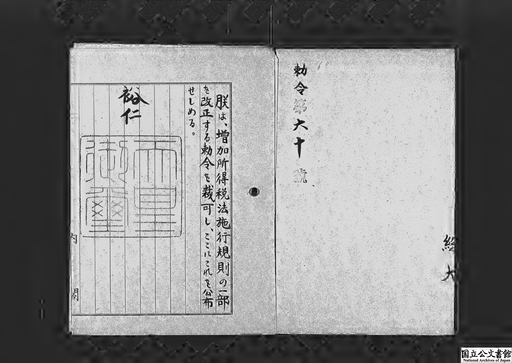 勅令第六十號
朕は、増加所得税法施行規則の一部
を改正する勅令を裁可し、ここにこれを公布
せしめる。
裕仁
天皇
御璽
内閣
国立公文書館
National Archives of Japan